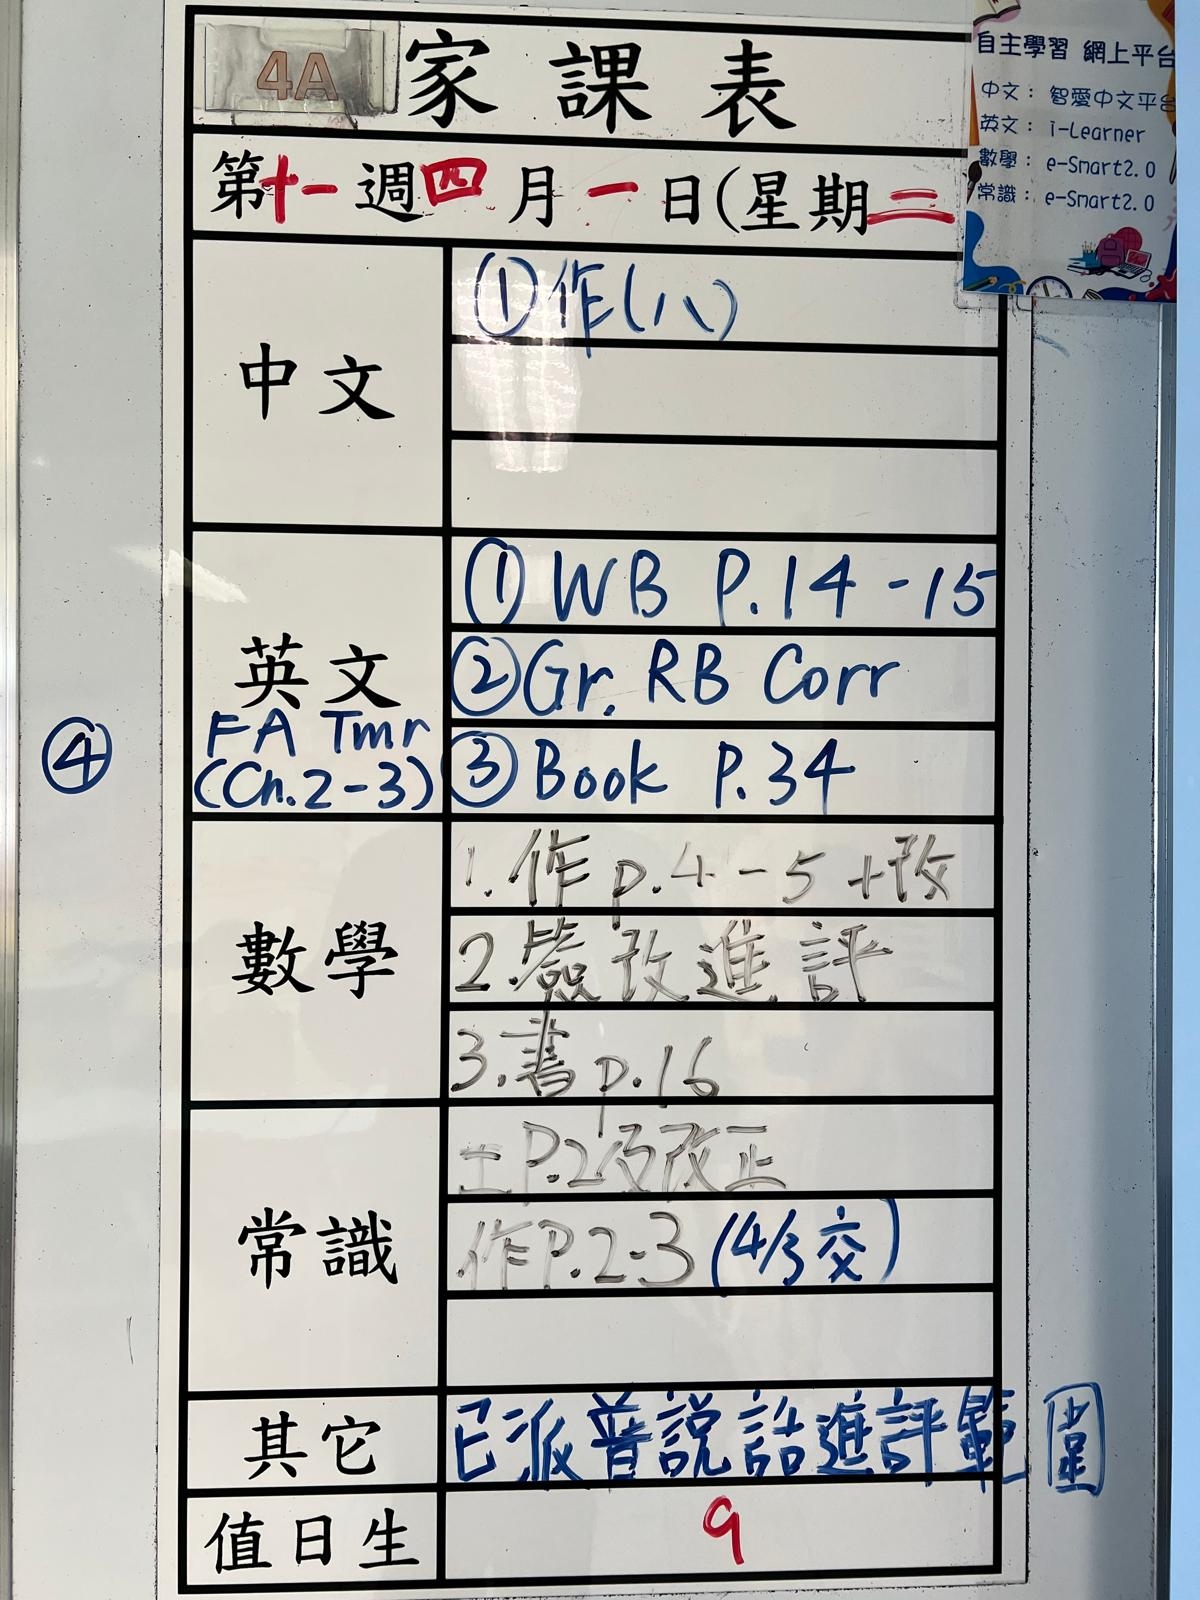 4A 家課表
自主學習 網上平台
中文： 智愛中文平台
英文： i-Learner
數學： e-Smart2.0
常識： e-Smart2.0
第十一週四月一日(星期二
中文
①作(八)
英文
①WB P.14-15
②Gr. RB Corr
③Book P.34
④ FA Tmr
(Ch.2-3)
數學
1.作p.4-5+改
2.簽改進評
3.書p.16
常識
P.2及改正
作P.2-3(4/3交)
其它
已派普說話進評範圍
值日生
9